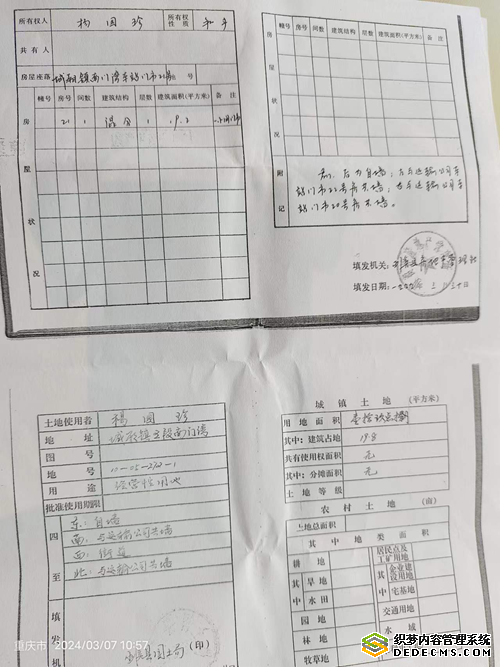 所有权人 杨国珍 所有权性质 私产
共有人
房屋座落 城厢镇西门停车场门市21# 号
幢号 房号 间数 建筑结构 层数 建筑面积(平方米) 备注
21 1 混合 1 19.8
房屋状况
幢号 房号 间数 建筑结构 层数 建筑面积(平方米) 备注
房屋状况
附记
前、后为自墙；左与运输公司车
站门市22号房共墙；右与运输公司车
站门市20号房共墙。
填发机关：
填发日期：
土地使用者 杨国珍
地址
图号
地号 11-05-270-1
用途
批准使用期限
四至
东：自墙
南：与运输公司共墙
西：街道
北：与运输公司共墙
填发机
国土局 (印)
城镇土地 (平方米)
用地面积 壹拾玖点捌
其中：建筑占地 19.8
共有使用权面积 无
其中：分摊面积 无
土地等级
农村土地 (亩)
土地总面积
其中地类面积
耕地 居民点及工矿用地
其中 旱地 其中 企业建设用地
水田 宅基地
园地 交通用地
林地 水域
牧草地
重庆市 2024/03/07 10:57
织梦内容管理系统
DEDECMS.COM